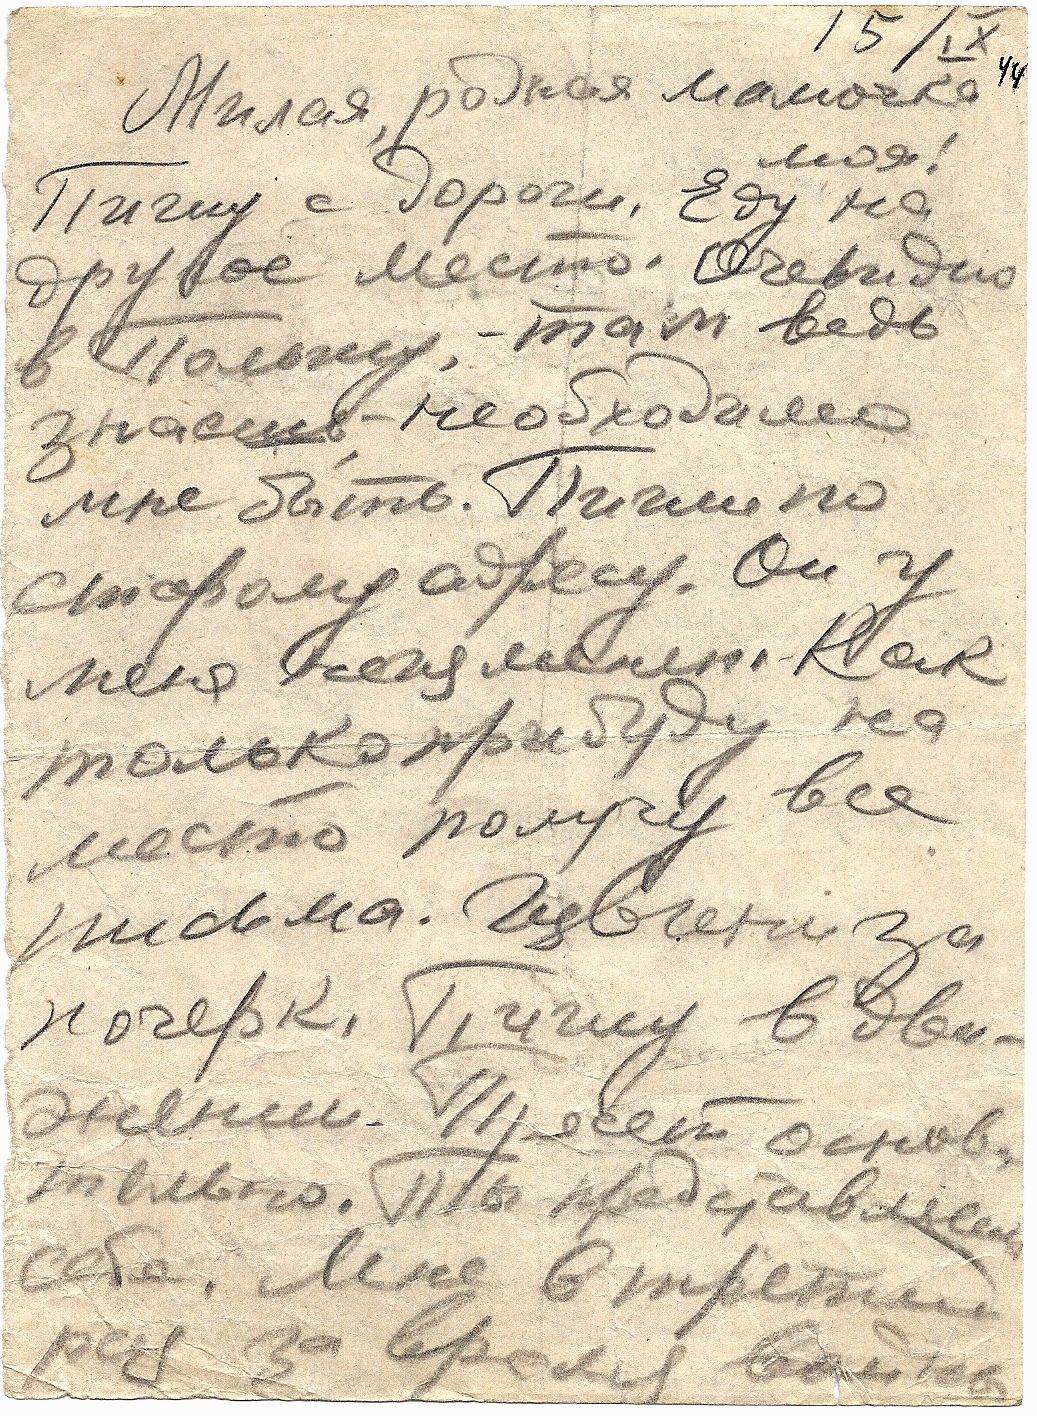 15/IX
44
Милая, родная мамочка
моя!
Пишу с дороги. Еду на
другое место. Очевидно
в Польшу, - там ведь
знаешь - необходимо
мне быть. Пиши по
старому адресу. Он у
меня неизменен. Как
только прибуду на
место получу все
письма. Извени за
почерк. Пишу в дви-
жении. Трясет основа-
тельно. Ты представляешь
себе. Мне в третий
раз за время войны